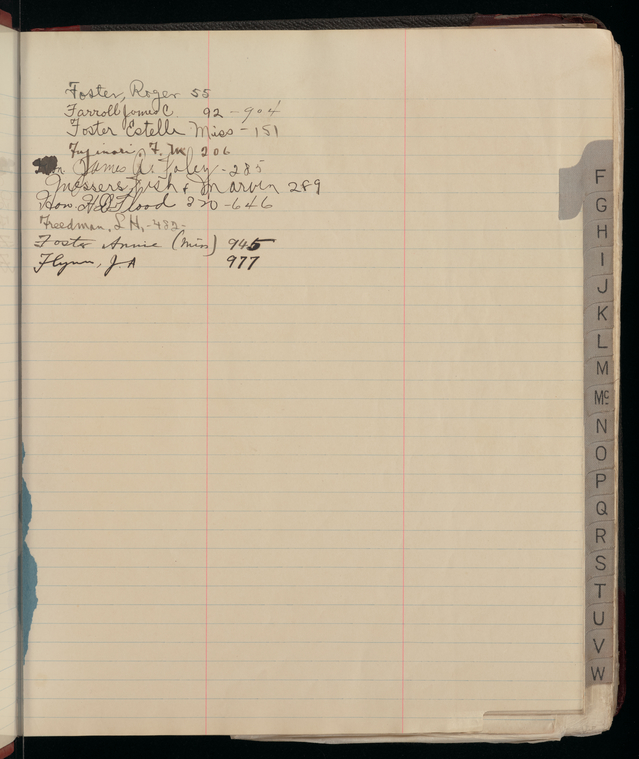 Foster, Roger 55
Farroll James C. 92 - 904
Foster Estelle Miss - 151
Fujinari, F. M. 206
James A. Foley - 285
Messers Fish & Marvin 289
Hon. H D Flood 320 - 646
Freedman, L H, - 482 -
Foster Annie (Miss) 945
Flynn, J. A 977
F
G
H
I
J
K
L
M
Mc
N
O
P
Q
R
S
T
U
V
W